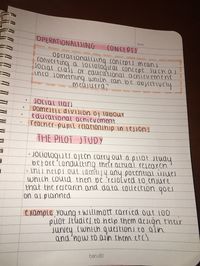 OPERATIONALISING CONCEPTS
operationalising concepts means
converting a sociological concept such as
social class or educational achievement
into something which can be objectively
measured.
• social class
• domestic division of labour
• educational achievement
• Teacher-pupil relationship in lessons
THE PILOT STUDY
• sociologists often carry out a pilot study
before conducting their actual research
• this helps out identify any potential issues
which could then be resolved to ensure
that the research and data collection goes
on as planned
example Young + Willmott carried out 100
pilot studies to help them design their
survey (which questions to ask
and how to ask them etc)